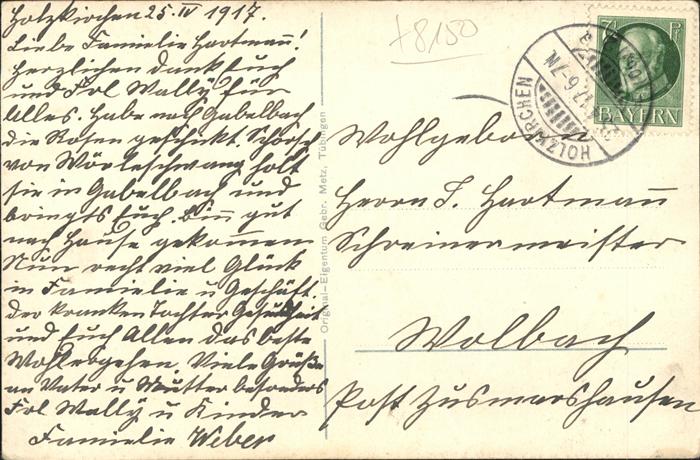 Holzkirchen 25. IV 1917.
Liebe Famielie Hartmañ!
Herzlichen Dank Euch
und Frl Wally für
Alles. Habe nach Gabelbach
die Rosen geschickt. Schorsch
von Wörleschwang holt
sie in Gabelbach und
bringts Euch. Biñ gut
nach Hause gekommen
Nun recht viel Glück
in Famielie u Geschäft.
der kranken Tochter Gesundheit
und Euch Allen das beste
Wohlergehen. Viele Grüße
an Vater u Mutter besonders
Frl Wally u Kinder
Famielie Weber
+8150
Original-Eigentum Gebr. Metz, Tübingen
7½ Pf
BAYERN
HOLZKIRCHEN
Wohlgeboren
Herrn J. Hartmañ
Schreinermeister
Wolbach
Post Zusmarshausen